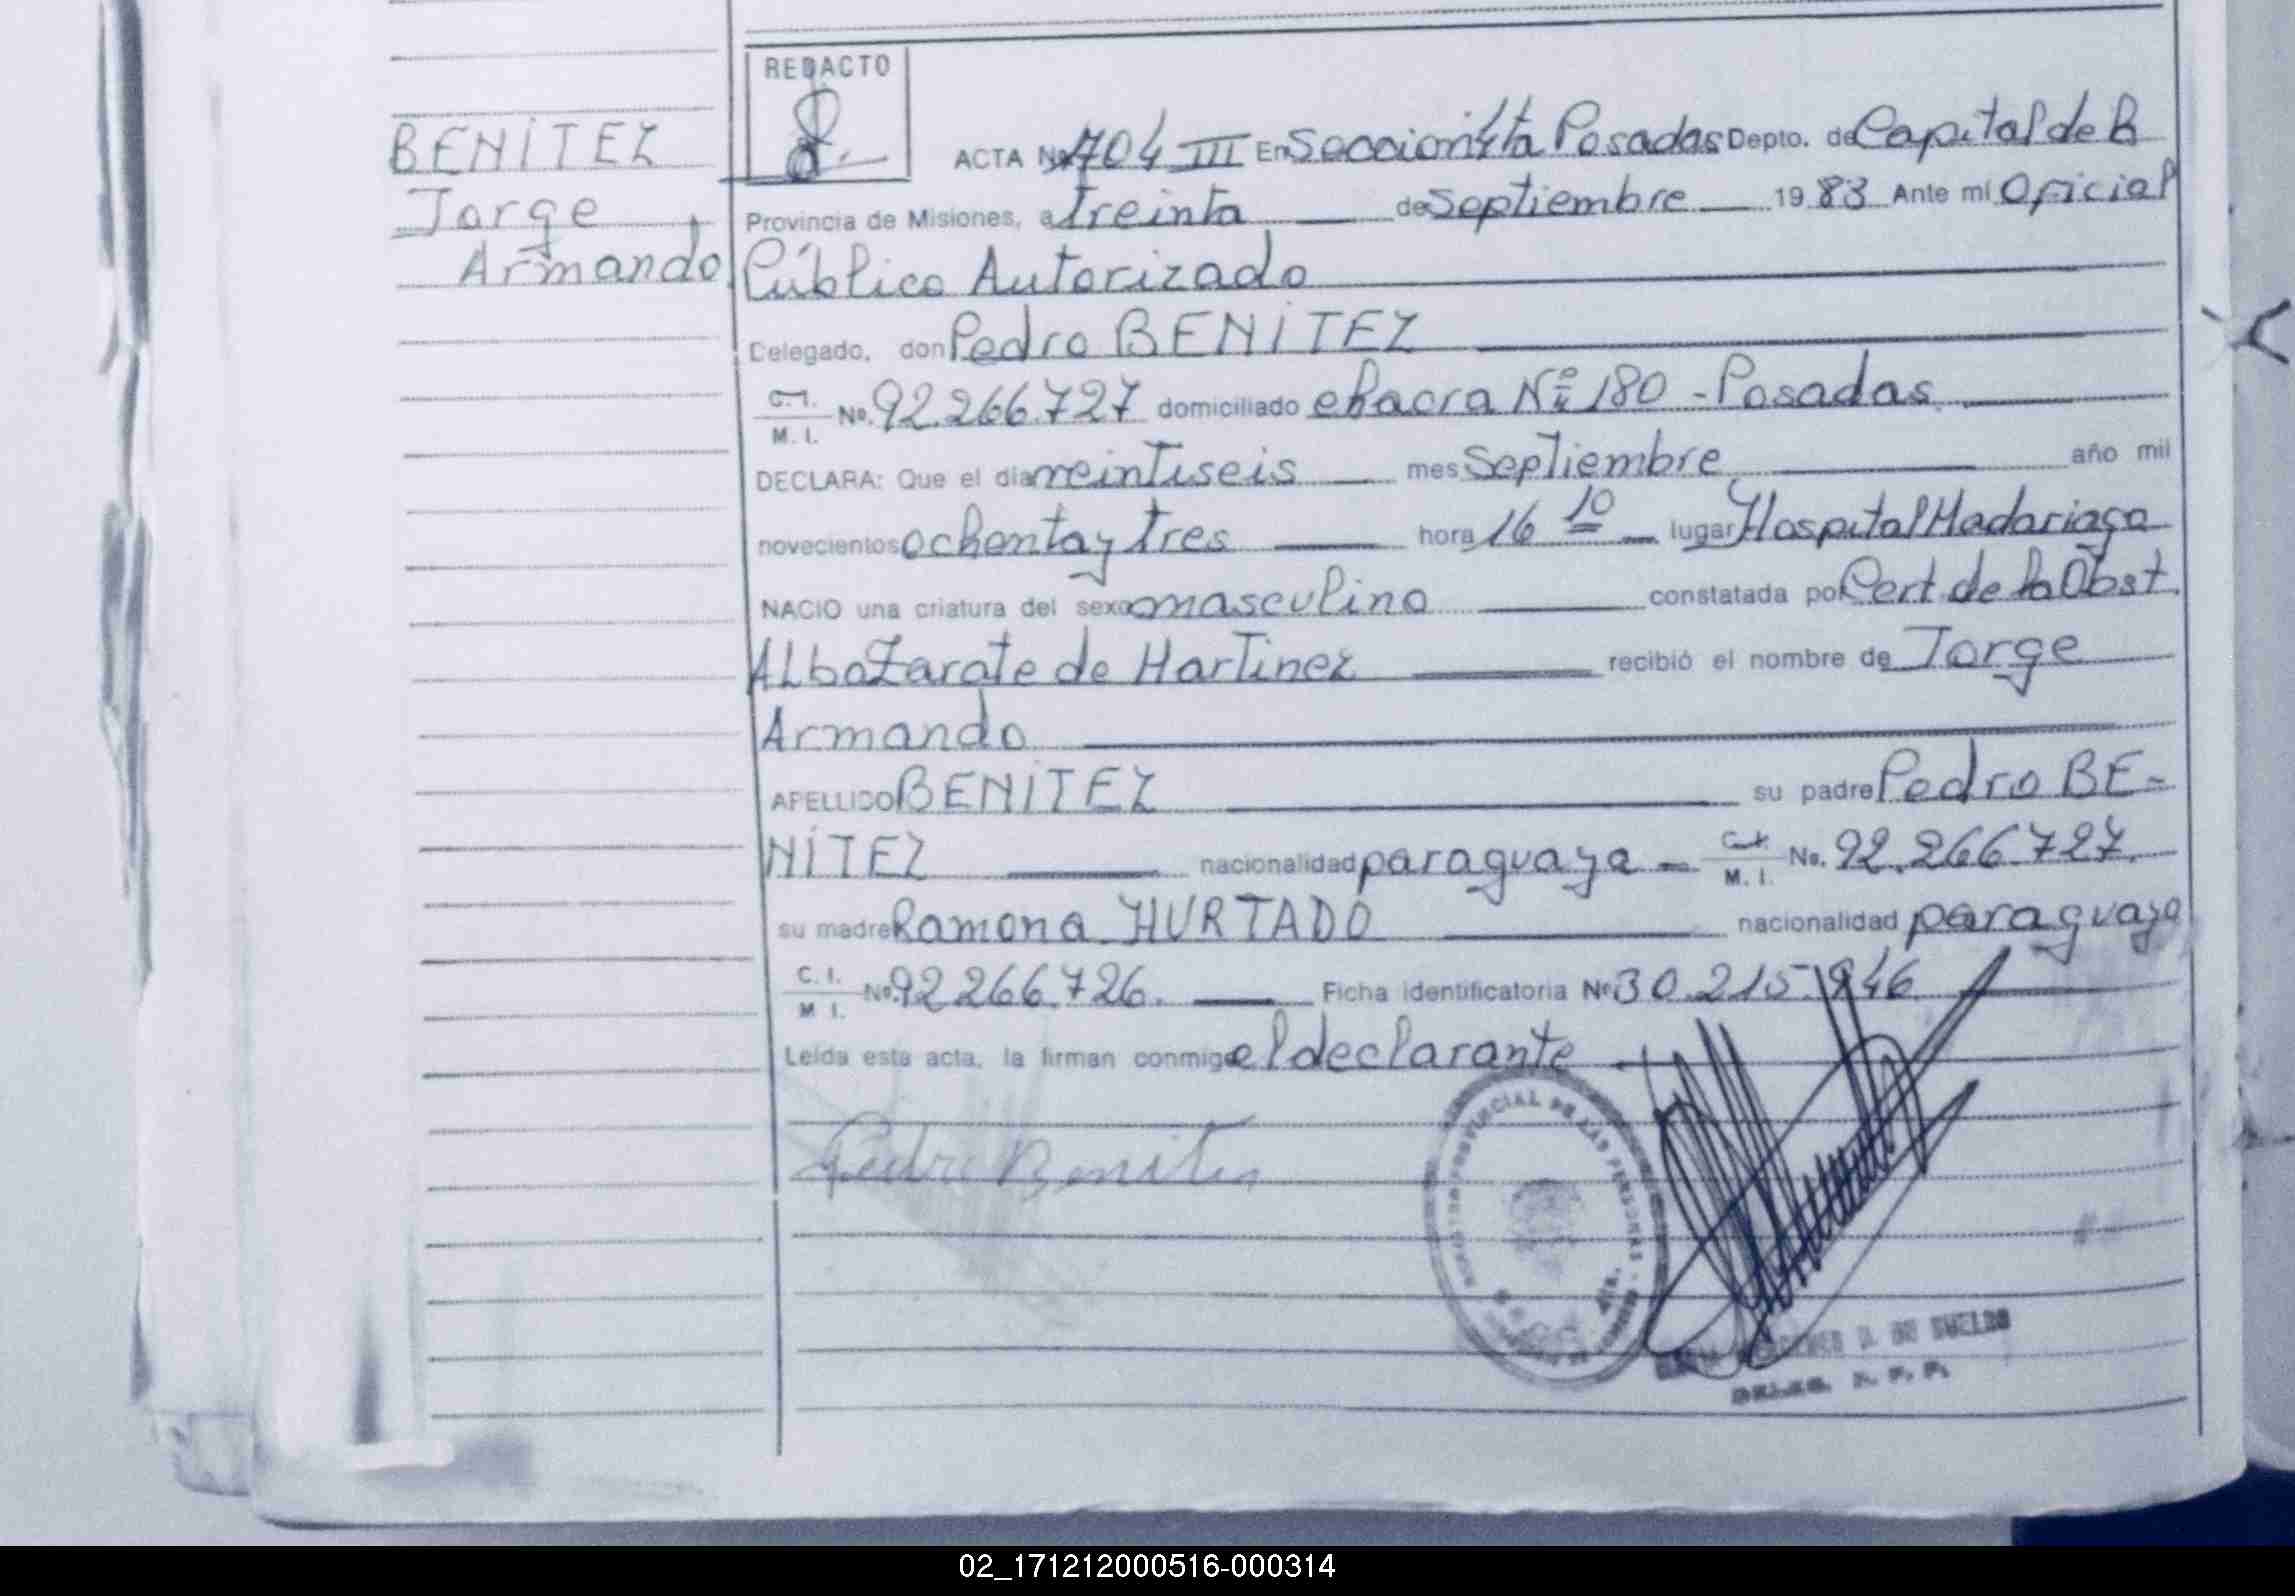 REDACTO
BENÍTEZ
Jorge
Armando
ACTA No. 704 III En Sección 4ta Posadas Depto. de Capital de la
Provincia de Misiones, a treinta de Septiembre 1983 Ante mí Oficial
Público Autorizado
Delegado, don Pedro BENÍTEZ
C.I. M. I. No. 92.266.727 domiciliado chacra Nº 180 - Posadas
DECLARA: Que el día veintiseis mes Septiembre año mil
novecientos ochenta y tres hora 16 10 lugar Hospital Madariaga
NACIO una criatura del sexo masculino constatada por Cert. de la Obst.
Alba Zarate de Martinez recibió el nombre de Jorge
Armando
APELLIDO BENÍTEZ su padre Pedro BE-
NÍTEZ nacionalidad paraguaya C.I. M. I. No. 92.266.727
su madre Ramona HURTADO nacionalidad paraguaya
C. I. M I. No. 92 266.726. Ficha identificatoria Nº 30.215.946
Leída esta acta, la firman conmigo el declarante
Pedro Benites
PROVINCIAL DE LAS PERSONAS
DELEG. R. P. P.
02_171212000516-000314